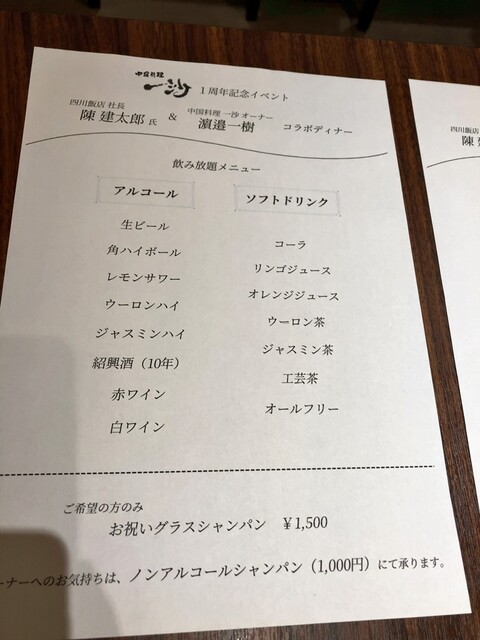 中国料理
一沙 1周年記念イベント
四川飯店 社長 中国料理 一沙 オーナー
陳 建太郎 氏 & 濵邉一樹 コラボディナー
飲み放題メニュー
アルコール
生ビール
角ハイボール
レモンサワー
ウーロンハイ
ジャスミンハイ
紹興酒（10年）
赤ワイン
白ワイン
ソフトドリンク
コーラ
リンゴジュース
オレンジジュース
ウーロン茶
ジャスミン茶
工芸茶
オールフリー
ご希望の方のみ
お祝いグラスシャンパン ￥1,500
ーナーへのお気持ちは、ノンアルコールシャンパン（1,000円）にて承ります。
四川飯店
陳